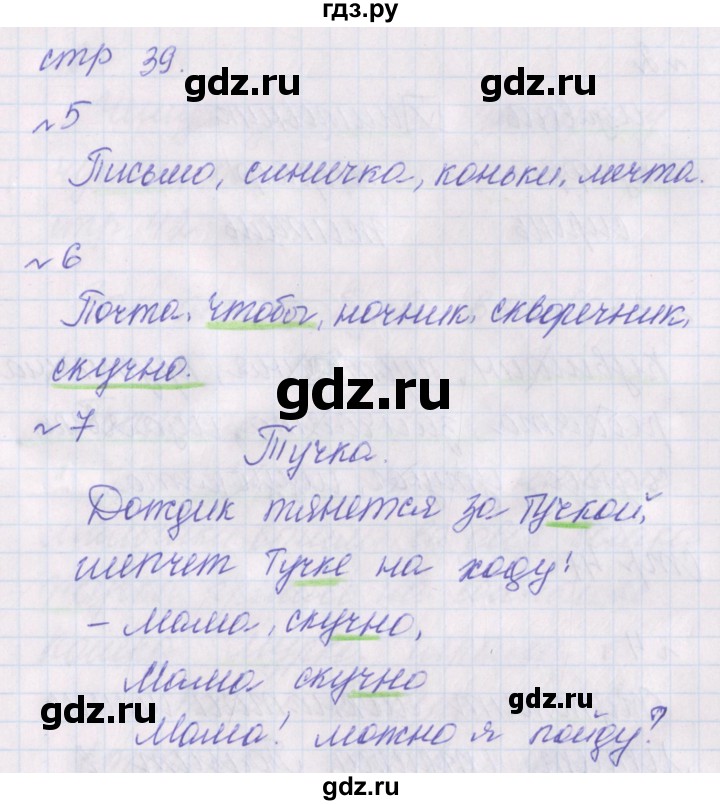 гдз.ру
стр 39.
gdz.ru gdz.ru
№5
Письмо, синичка, коньки, мечта.
№6
Почта, чтобы, ночник, скворечник,
скучно.
gdz.ru
№7
Тучка.
Дождик тянется за Тучкой,
шепчет Тучке на ходу!
– Мама, скучно,
Мама скучно
gdz.ru gdz.ru
Мама! можно я пойду?
gdz.ru